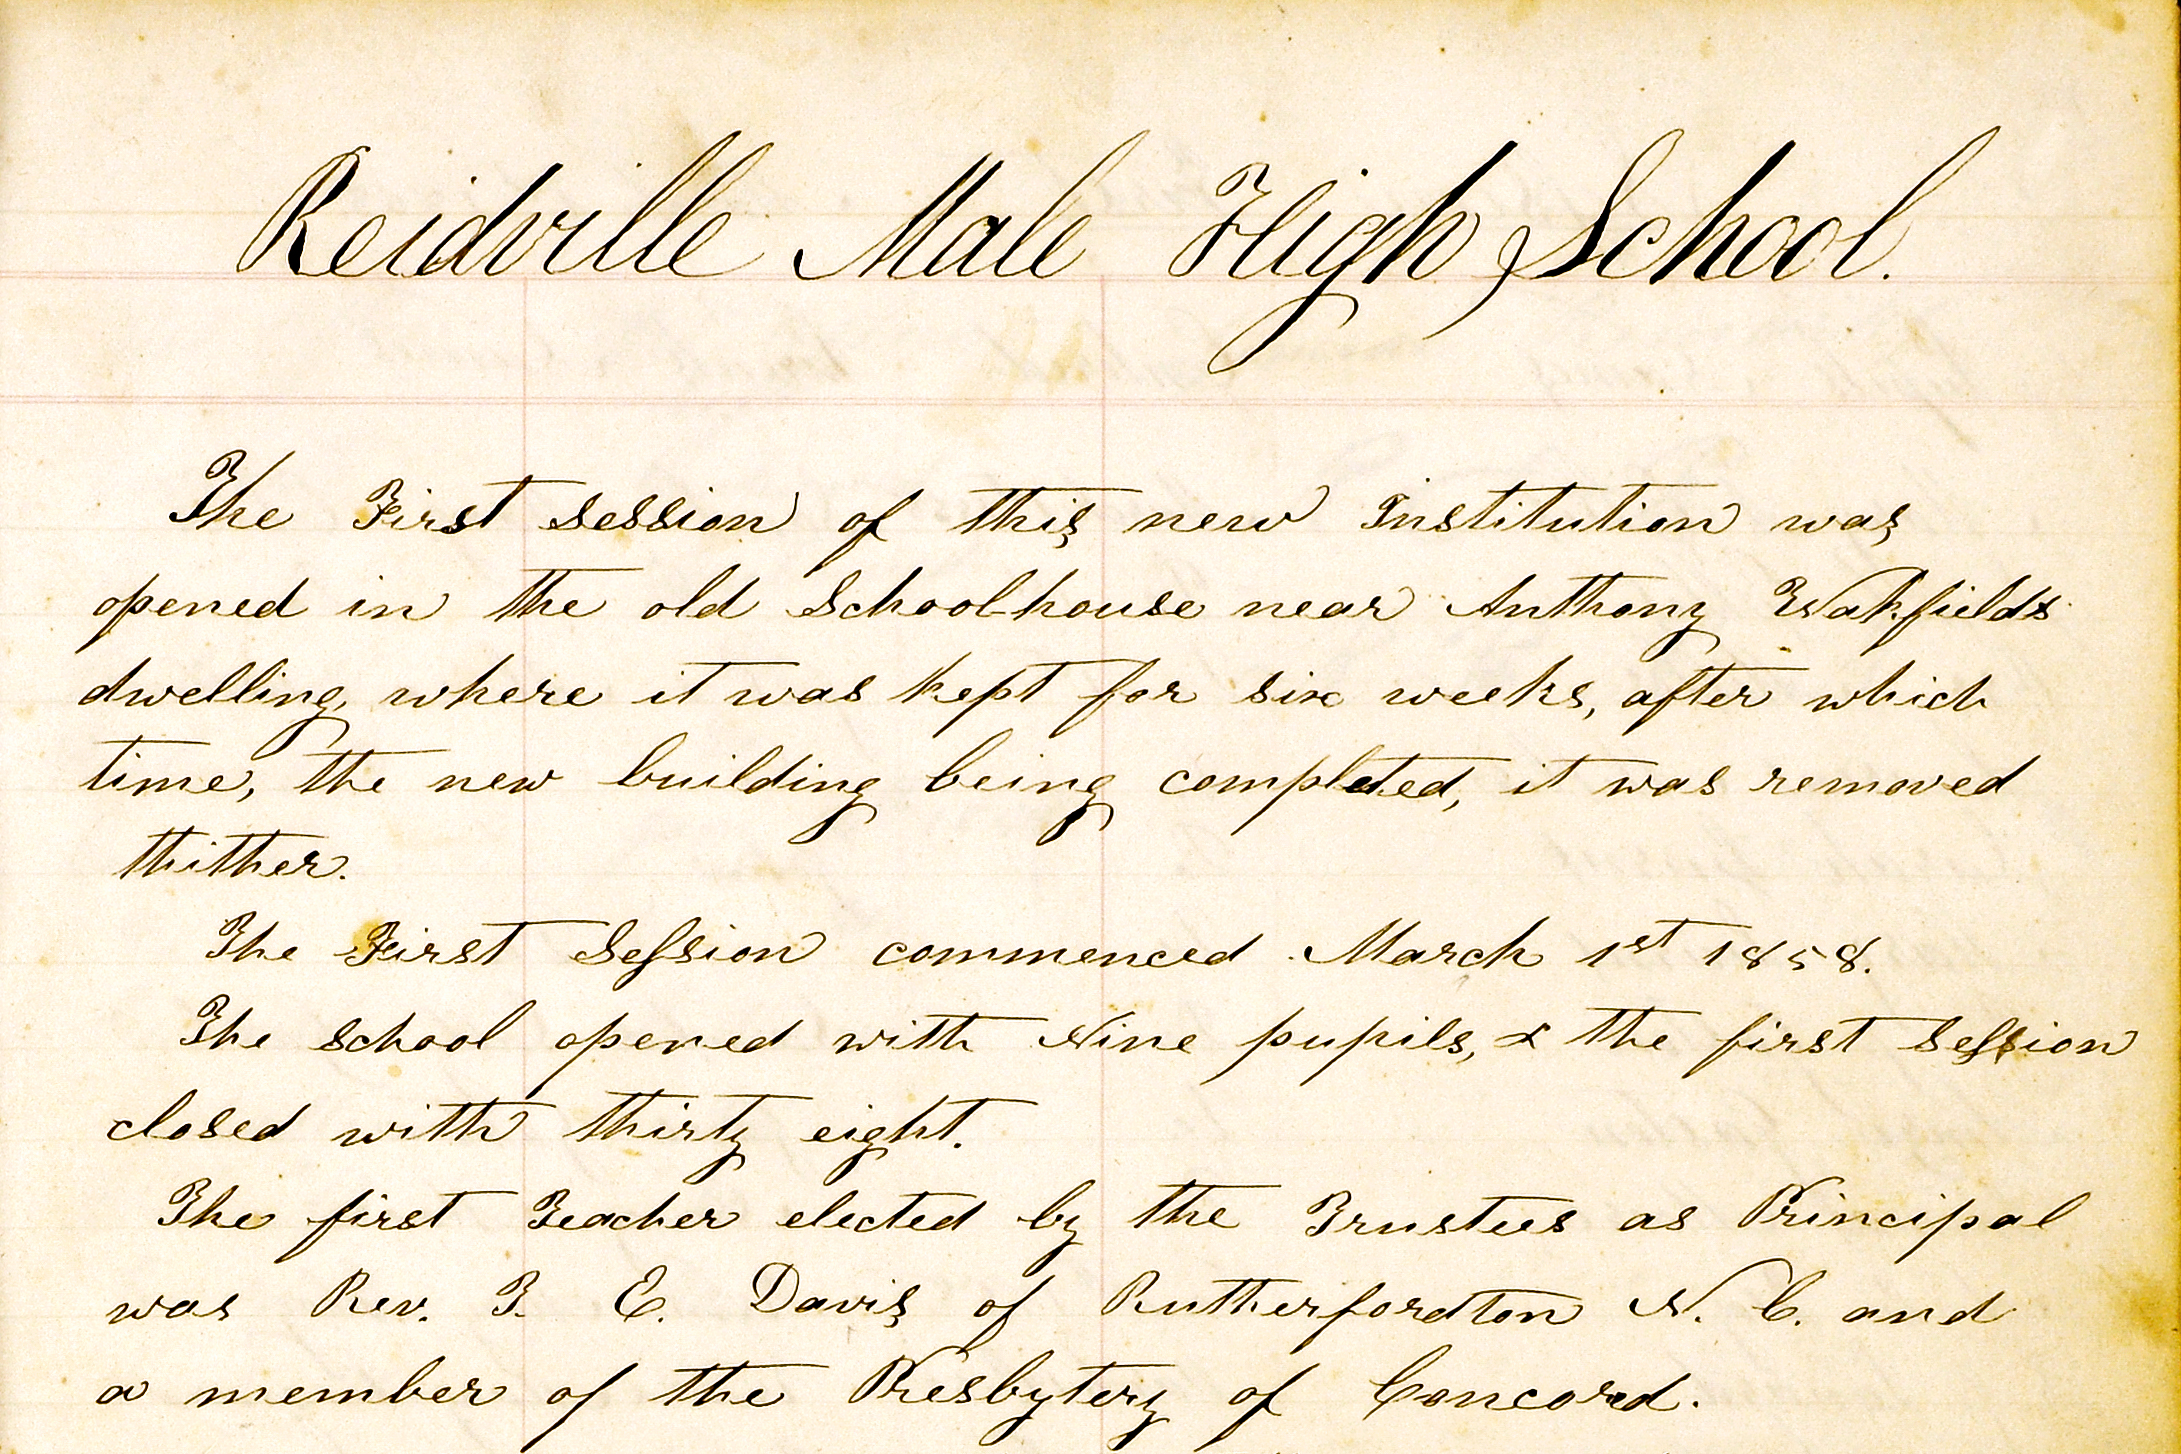 Reidville Male High School.
The First Session of this new Institution was
opened in the old School-house near Anthony Wakfields
dwelling, where it was kept for six weeks, after which
time, the new building being completed, it was removed
thither.
The First Session commenced March 1st 1858.
The school opened with Nine pupils, & the first session
closed with thirty eight.
The first Teacher elected by the Trustees as Principal
was Rev. T. E. Davis of Rutherfordton N. C. and
a member of the Presbytery of Concord.